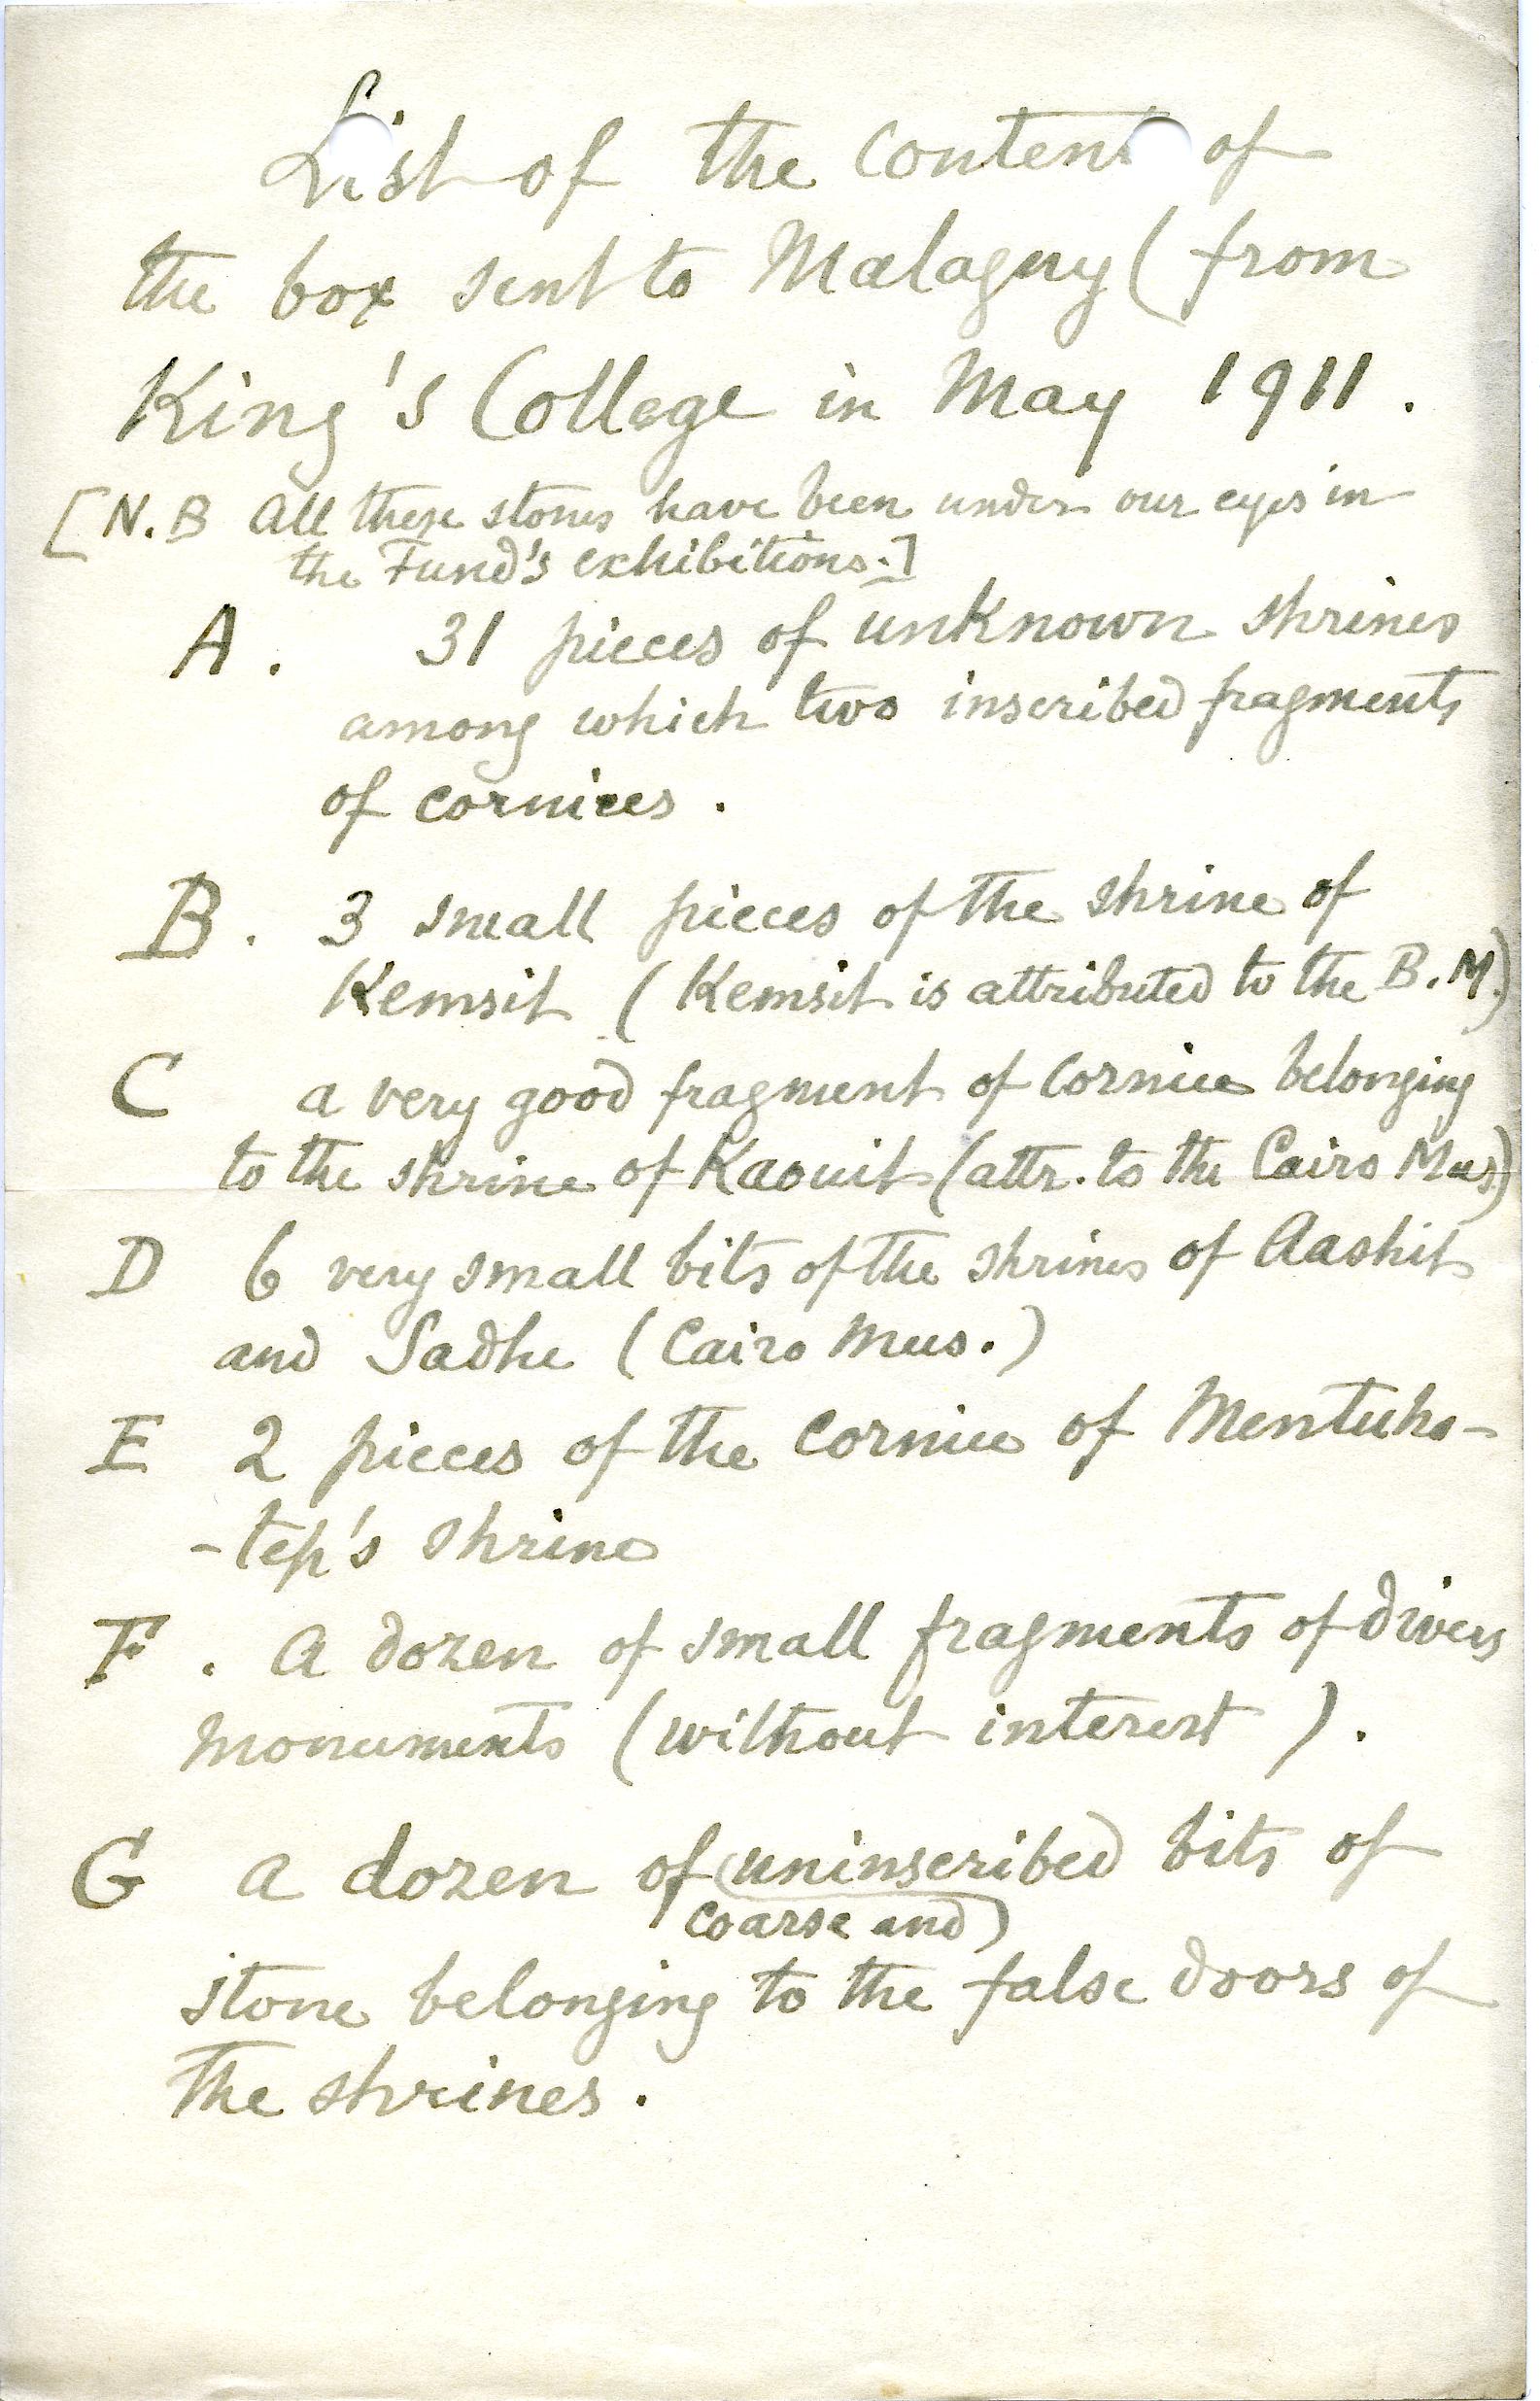 List of the content of
the box sent to Malagny (from
King's College in May 1911.
[N.B All these stones have been under our eyes in
the Fund's exhibitions.]
A. 31 pieces of unknown shrines
among which two inscribed fragments
of cornices.
B. 3 small pieces of the shrine of
Kemsit (Kemsit is attributed to the B.M.)
C a very good fragment of cornice belonging
to the shrine of Kaouit (attr. to the Cairo Mus.)
D 6 very small bits of the shrines of Aashit
and Sadhe (Cairo Mus.)
E 2 pieces of the cornice of Mentuho-
-tep's shrine
F. A dozen of small fragments of divers
monuments (without interest).
G a dozen of (uninscribed bits of
coarse and)
stone belonging to the false doors of
the shrines.